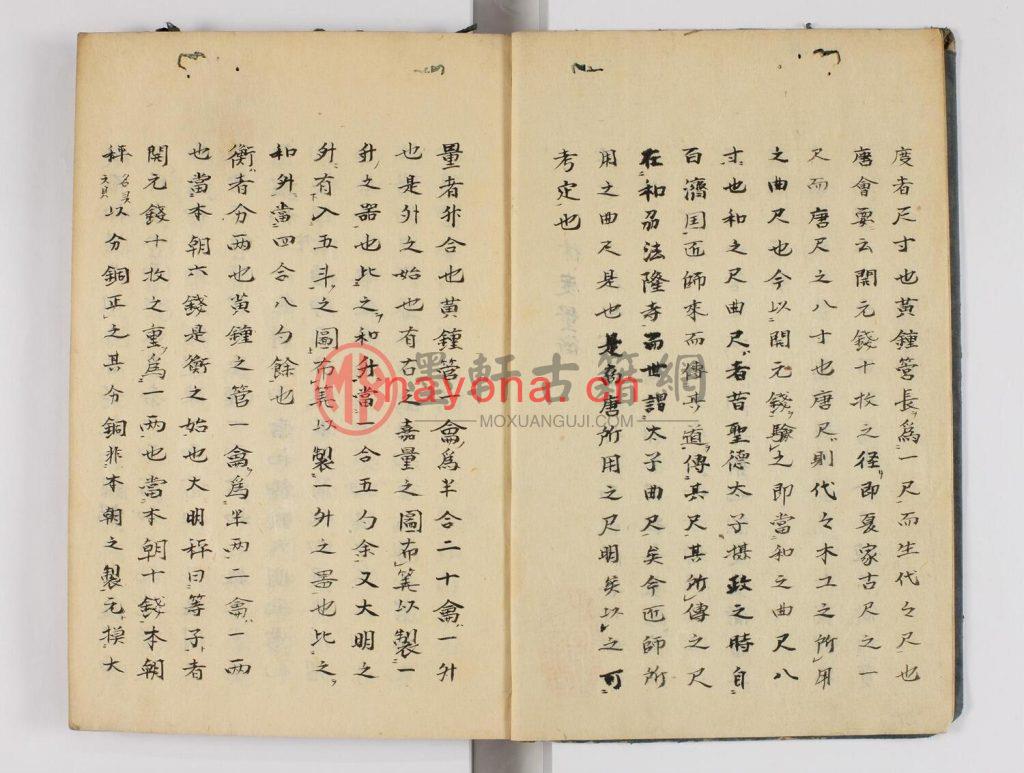 度者尺寸也黄鐘管長為一尺而生代々尺也
唐會要云開元錢十枚之径即夏家古尺之一
尺而唐尺之八寸也唐尺則代々木工之所用
之曲尺也今以開元錢驗之即當和之曲尺八
寸也和之尺曲尺者昔聖德太子摂政之時自
百濟国匠師來而傳其道傳其尺其所傳之尺
在和刕法隆寺而世謂太子曲尺矣今匠師所
用之曲尺是也是為唐所用之尺明矣以之可
考定也
量者升合也黄鐘管一龠為半合二十龠一升
也是升之始也有古之嘉量之圖布筭以製一
升之器也比之和升當一合五勺余又大明之
升有入五斗之圖布筭以製一升之器也比之
和升當四合八勺餘也
衡者分両也黄鐘之管一龠為半両二龠一両
也當本朝六錢是衡之始也大明秤曰等子者
開元錢十枚之重為一両也當本朝十錢本朝
秤以分銅正之其分銅非本朝之製元摸大
墨軒古籍網
nayona.cn
MOXUANGUJI.COM